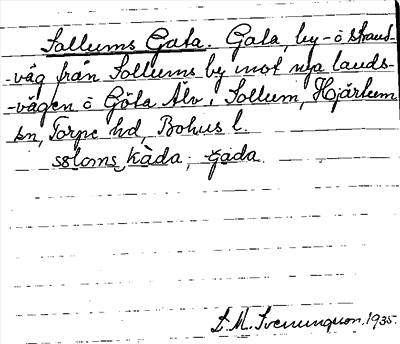 Sollums Gata. Gata, by- o strand-
-väg från Sollums by mot nya lands-
-vägen o Göta Älv. Sollum, Hjärtum
sn, Torpe hd, Bohus l.
ssloms kàda; gada.
L. M. Svenungsson. 1935.